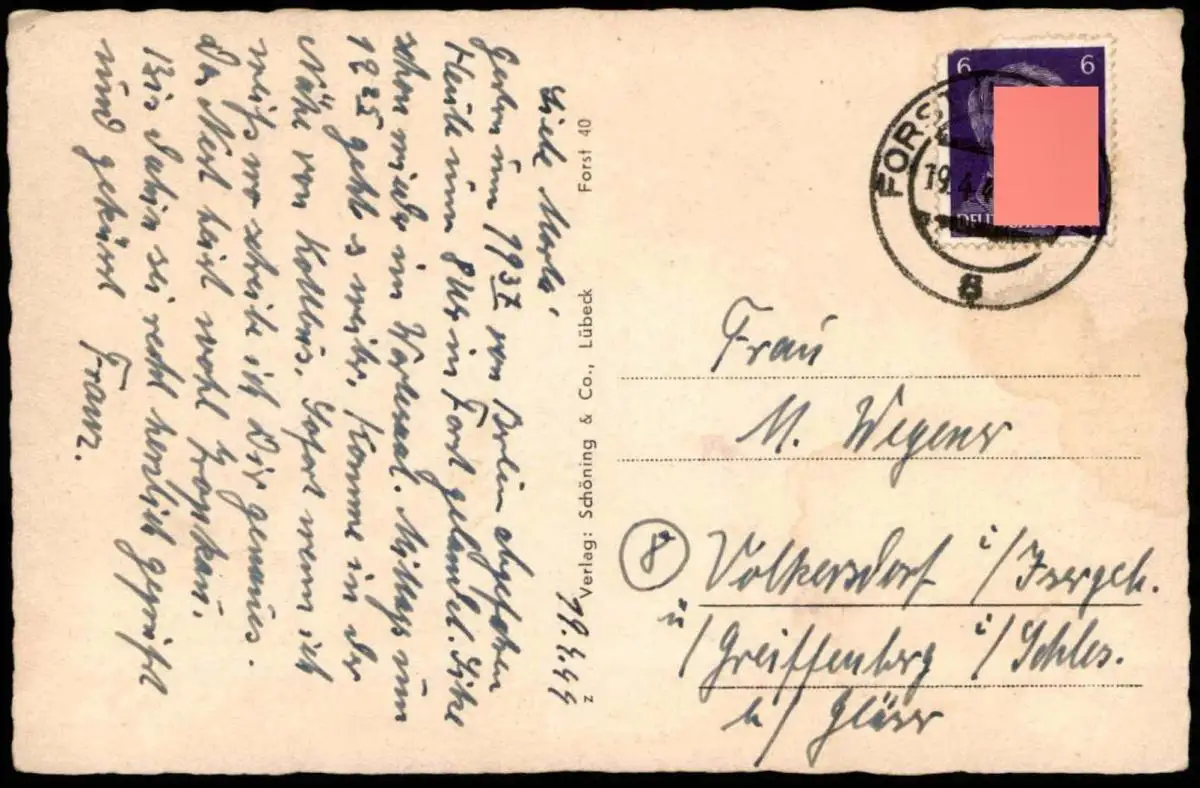 19.4.44
Liebe Marta!
Gestern um 19 37 von Berlin abgefahren
Heute um 8 Uhr in Forst gelandet. Sitze
schon wieder im Wartesaal. Mittags um
12 25 geht's weiter. Komme in der
Nähe von Kottbus. Sofort wenn ich
weiß wo schreibe ich Dir genaues.
Du Nerl hast wohl
Bis dahin sei recht herzlich gegrüßt
und geküsst Franz.
Verlag: Schöning & Co., Lübeck Forst 40
z
6 6
FORST
19.4.4
a
Frau
M. Wegener
8
Volkersdorf i/Isergeb.
ü/Greiffenberg i/Schles.
b/ Gläser